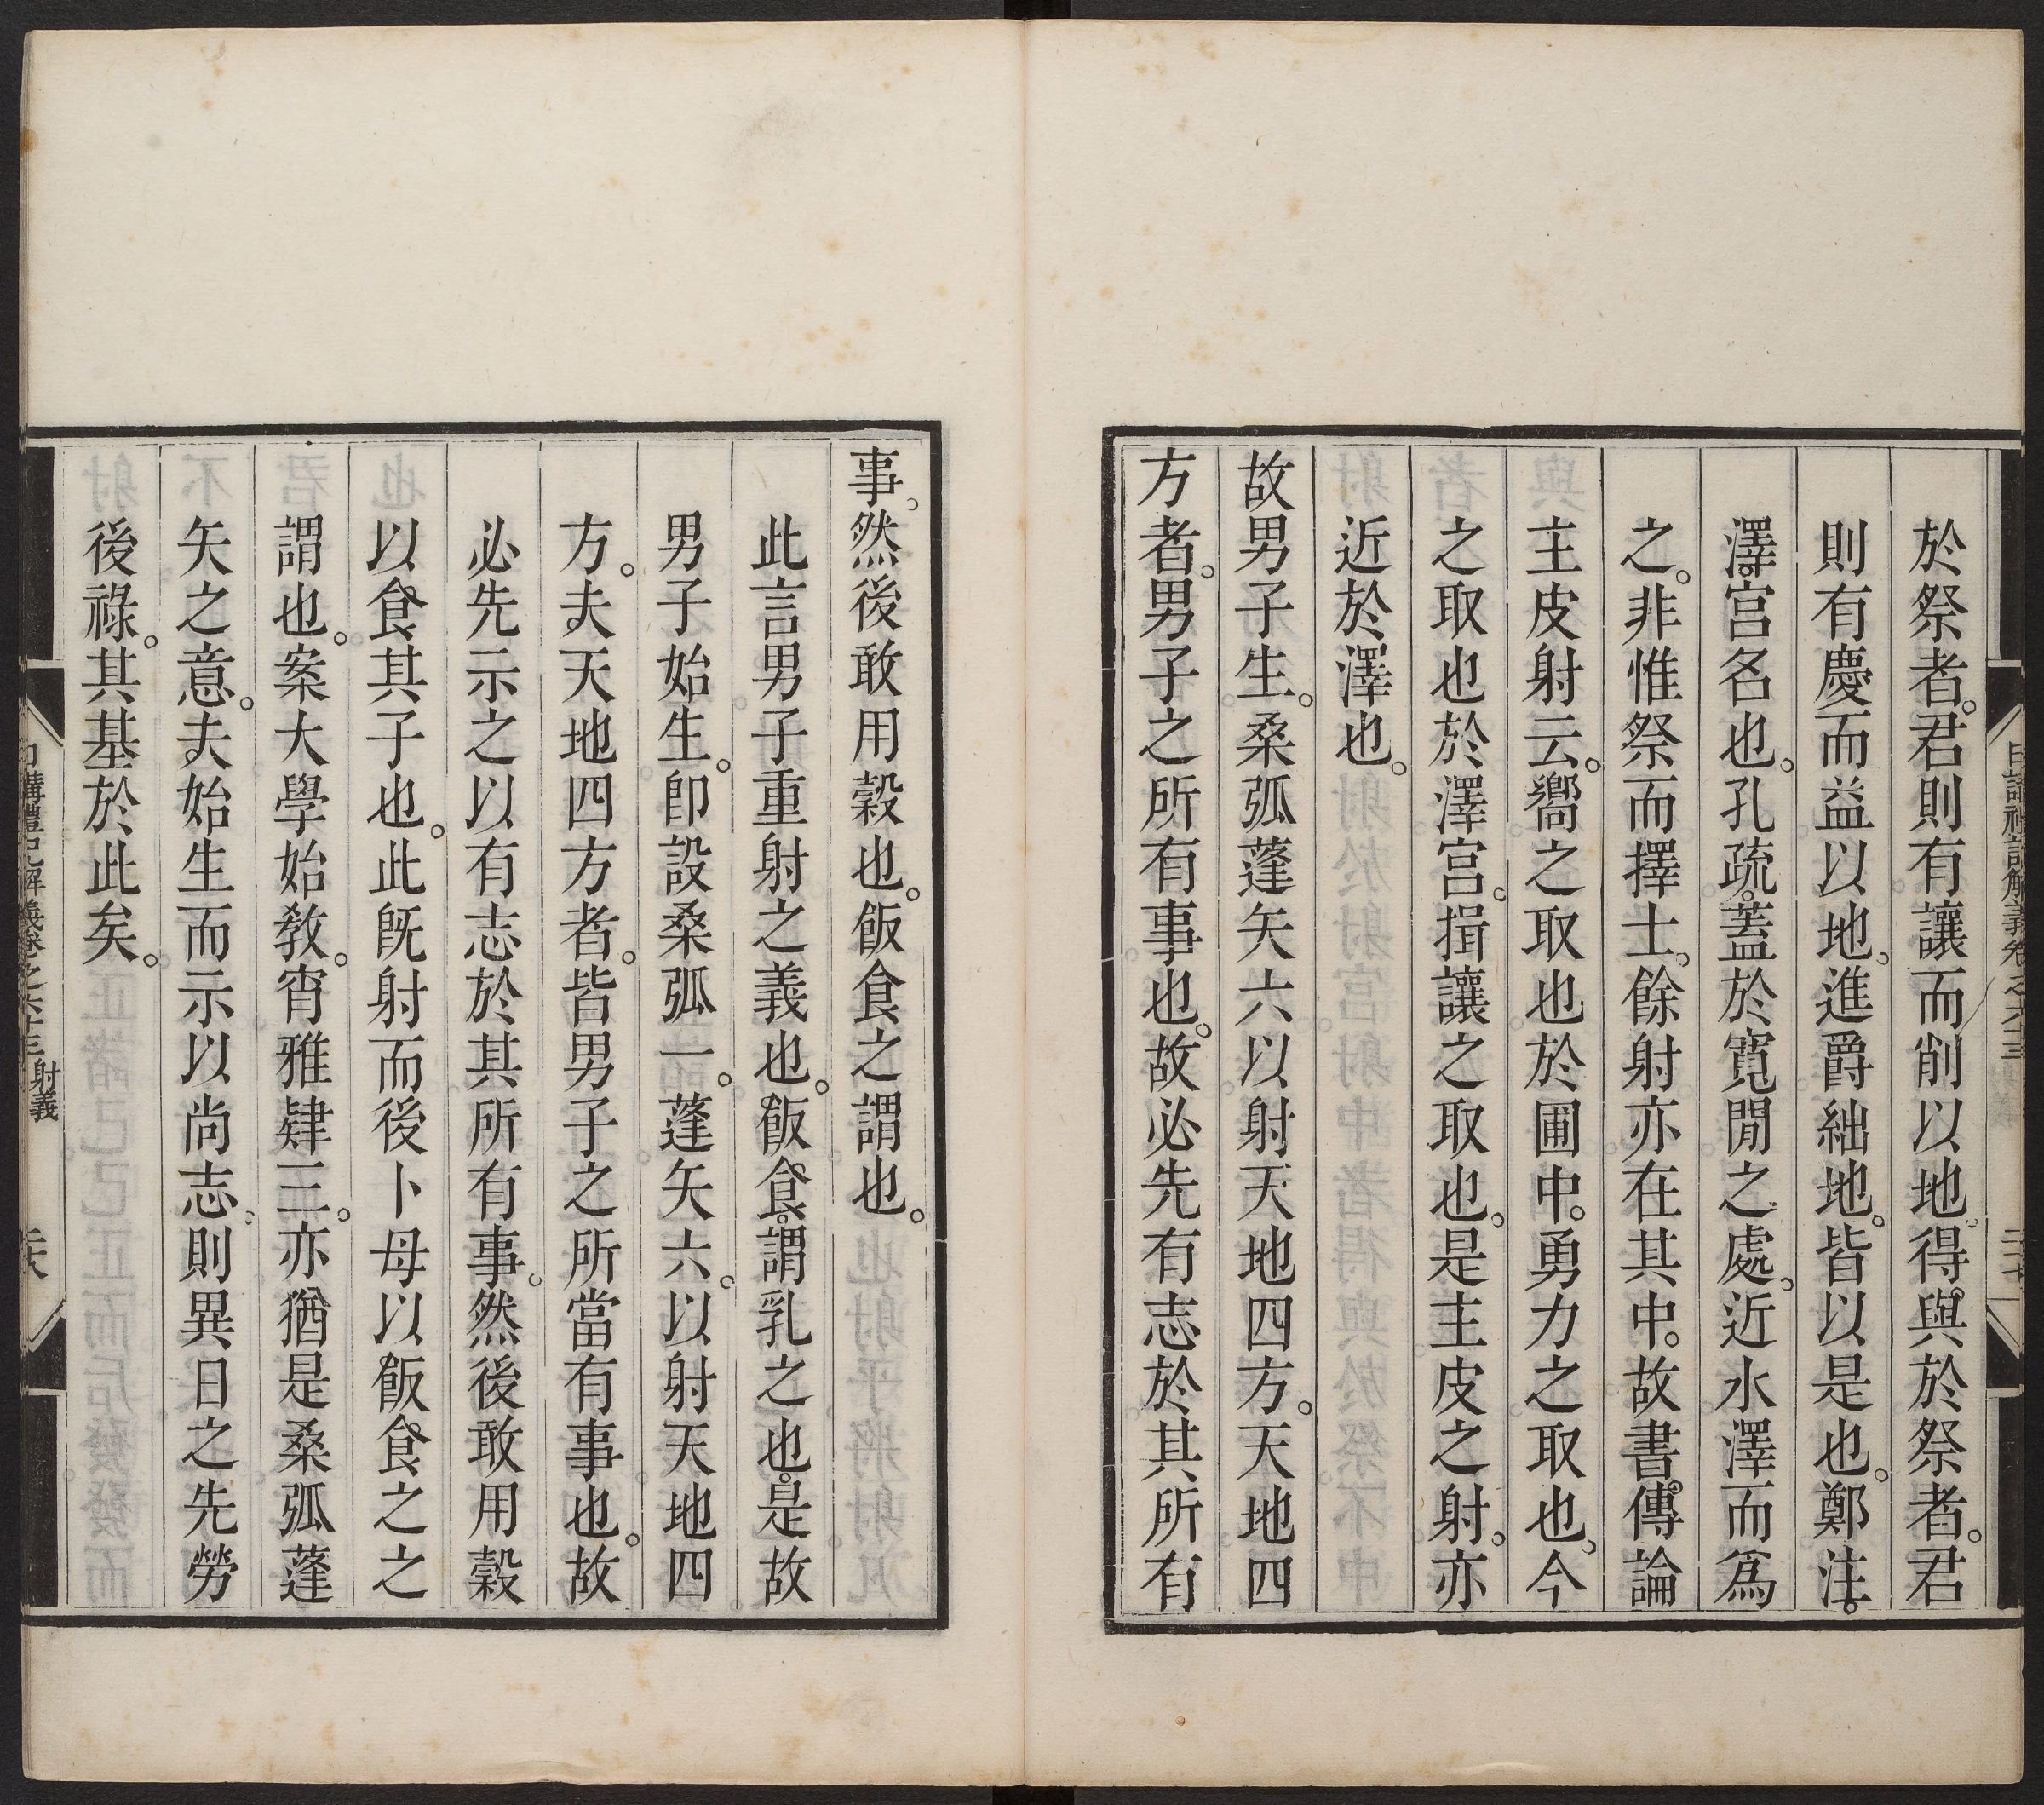 於祭者。君則有讓而削以地。得與於祭者。君
則有慶而益以地。進爵絀地。皆以是也。鄭注。
澤。宮名也。孔疏。蓋於寬閒之處。近水澤而爲
之。非惟祭而擇士。餘射亦在其中。故書。傳論
主皮射云。嚮之取也於圃中。勇力之取也。今
之取也於澤宮。揖讓之取也。是主皮之射。亦
近於澤也。
故男子生。桑弧蓬矢六以射天地四方。天地四
方者。男子之所有事也。故必先有志於其所有
事。然後敢用穀也。飯食之謂也。
此言男子重射之義也。飯食。謂乳之也。是故
男子始生。卽設桑弧一。蓬矢六。以射天地四
方。夫天地四方者。皆男子之所當有事也。故
必先示之以有志於其所有事。然後敢用穀
以食其子也。此旣射而後卜母以飯食之之
謂也。案大學始敎。宵雅肄三。亦猶是桑弧蓬
矢之意。夫始生而示以尚志。則異日之先勞
後祿。其基於此矣。
日講禮記解義卷之六十三 射義